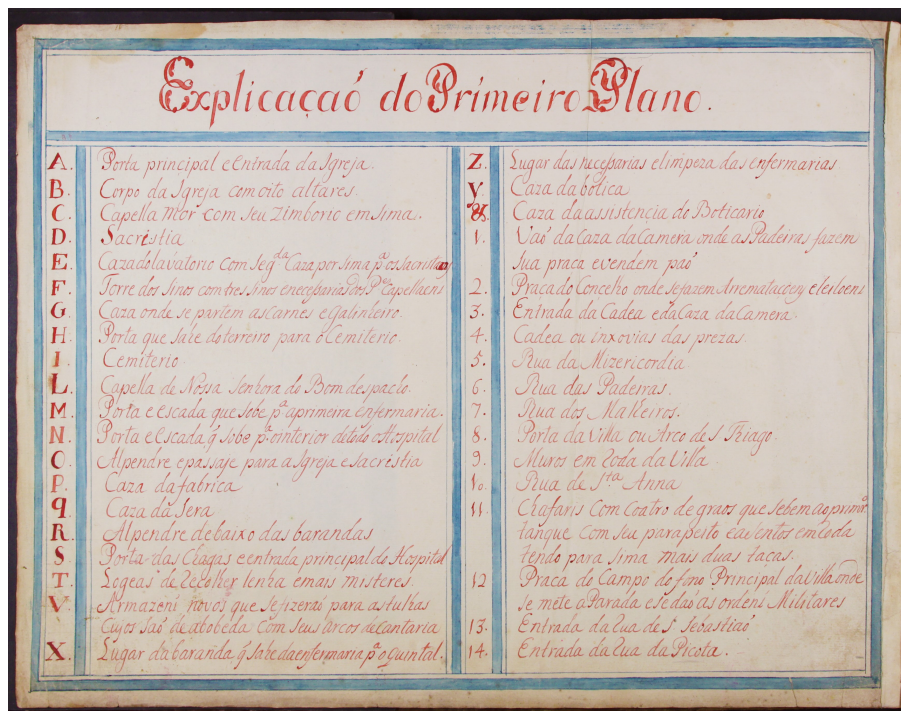 Explicaçaó do Primeiro Plano.
A. Porta principal e Entrada da Igreja.
B. Corpo da Igreja com oito altares.
C. Capella mor com seu zimborio em sima.
D. Sacrestia
E. Caza do lavatorio com seg.da Caza por sima p.a os
F. Torre dos sinos com tres sinos e neceparias dos P.es Capellaens
G. Caza onde se partem as carnes e galinheiro.
H. Porta que sahe do terreiro para o Cemiterio.
I. Cemiterio.
L. Capella de Nossa Senhora do Bom despacho.
M. Porta e escada que sobe p.a a primeira enfermaria.
N. Porta e escada q̃ sobe p.a o interior de todo o Hospital
O. Alpendre e passaje para a Igreja e sacrestia
P. Caza da fabrica
q. Caza da Sera
R. Alpendre debaixo das barandas
S. Porta das Chagas e entrada principal do Hospital
T. Logeas de recolher lenha e mais misteres.
V. Armazeñs novos que se fizeraó para as tulhas
Cujos saó de abobeda com seus arcos de Cantaria
X. Lugar da baranda q̃ sahe da enfermaria p.a o quintal.
Z. Lugar das neceparias e limpeza das enfermarias
y. Caza da botica
&. Caza da assistencia do Boticario
1. Vaó da Caza da Camera onde as Padeiras fazem
sua praca e vendem paó
2. Praça do Concelho onde se fazem Arremataçoeñs e leiloens
3. Entrada da Cadea e da Caza da Camera.
4. Cadea ou inxovias das prezas.
5. Rua da Mizericordia
6. Rua das Padeiras.
7. Rua dos Malteiros.
8. Porta da Villa ou Arco de S Thiago.
9. Muros em roda da Villa.
10. Rua de S.ta Anna
11. Chafaris com coatro degraos que sobem ao prim.ro
tanque com seu parapeito e asentos em roda
tendo para sima mais duas tacas.
12 Praca do Campo do fono Principal da Villa onde
se mete a Parada e se daó as ordeñs Militares
13. Entrada da rua de S Sebastiaó
14. Entrada da rua da Picota.